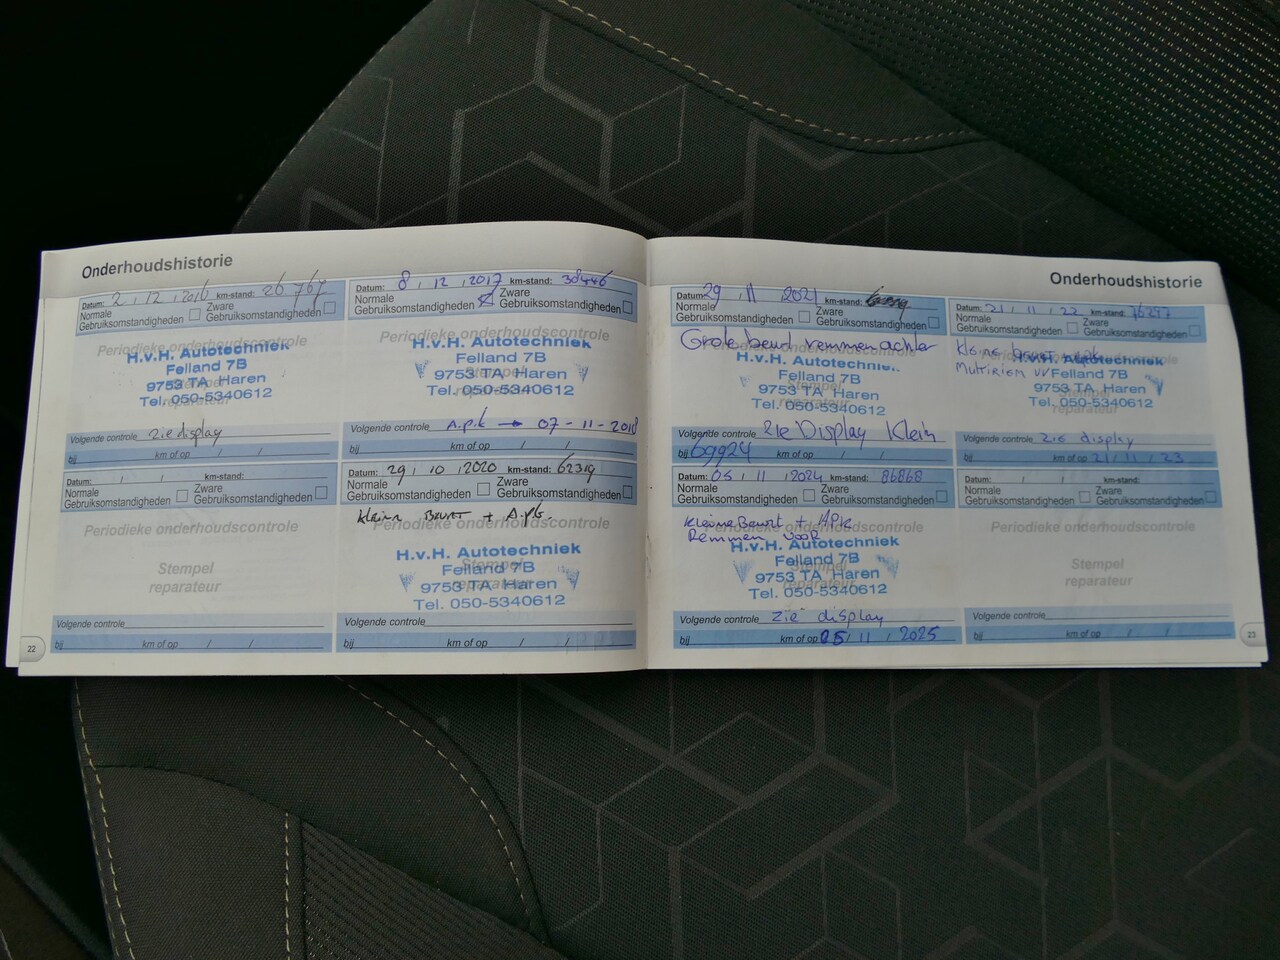 Onderhoudshistorie
Datum: 2 / 12 / 2016 km-stand: 26.767
Normale Gebruiksomstandigheden Zware Gebruiksomstandigheden
Periodieke onderhoudscontrole
H.v.H. Autotechniek
Felland 7B
9753 TA Haren
Tel. 050-5340612
Volgende controle zie display
bij km of op / /
Datum: 8 / 12 / 2017 km-stand: 38446
Normale Gebruiksomstandigheden Zware Gebruiksomstandigheden
Periodieke onderhoudscontrole
H.v.H. Autotechniek
Felland 7B
9753 TA Haren
Tel. 050-5340612
Volgende controle A.p.k → 07-11-2018
bij km of op / /
Datum: / / km-stand:
Normale Gebruiksomstandigheden Zware Gebruiksomstandigheden
Periodieke onderhoudscontrole
Stempel
reparateur
Volgende controle
bij km of op / /
Datum: 29 / 10 / 2020 km-stand: 62319
Normale Gebruiksomstandigheden Zware Gebruiksomstandigheden
Kleine Beurt + A.pk.
Periodieke onderhoudscontrole
H.v.H. Autotechniek
Felland 7B
Stempel
9753 TA Haren
reparateur
Tel. 050-5340612
Volgende controle
bij km of op / /
22
Onderhoudshistorie
Datum: 29 / 11 / 2021 km-stand:
Normale Gebruiksomstandigheden Zware Gebruiksomstandigheden
Grote beurt remmen achter
H.v.H. Autotechniek
Felland 7B
Stempel
9753 TA Haren
reparateur
Tel. 050-5340612
Volgende controle Zie Display Klein
bij 69924 km of op / /
Datum: 21 / 11 / 22 km-stand: 76297
Normale Gebruiksomstandigheden Zware Gebruiksomstandigheden
Kleine beurt + apk
Multiriem VV
H.v.H. Autotechniek
Felland 7B
Stempel
9753 TA Haren
reparateur
Tel. 050-5340612
Volgende controle zie display
bij km of op 21 / 11 / 23
Datum: 05 / 11 / 2024 km-stand: 86868
Normale Gebruiksomstandigheden Zware Gebruiksomstandigheden
Kleine Beurt + APK
Periodieke onderhoudscontrole
Remmen voor
H.v.H. Autotechniek
Felland 7B
Stempel
9753 TA Haren
reparateur
Tel. 050-5340612
Volgende controle zie display
bij km of op 05 / 11 / 2025
Datum: / / km-stand:
Normale Gebruiksomstandigheden Zware Gebruiksomstandigheden
Periodieke onderhoudscontrole
Stempel
reparateur
Volgende controle
bij km of op / /
23